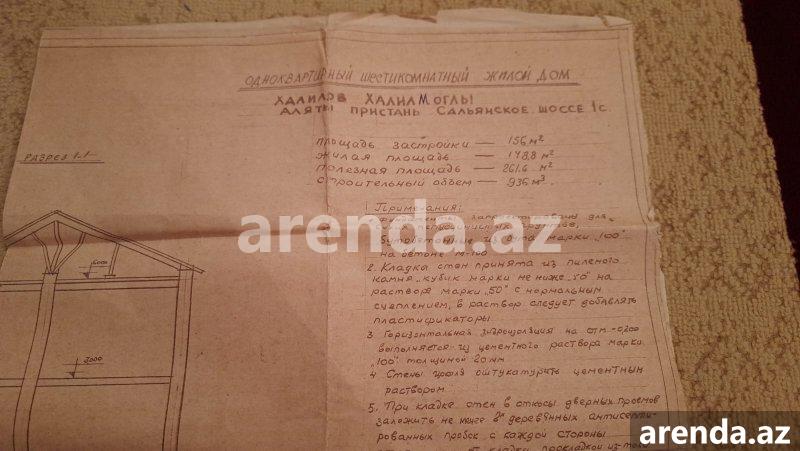 ОДНОКВАРТИРНЫЙ ШЕСТИКОМНАТНЫЙ ЖИЛОЙ ДОМ
ХАЛИЛОВ ХАЛИЛ МОГЛЫ
АЛЯТЫ ПРИСТАНЬ САЛЬЯНСКОЕ ШОССЕ 1С.
ПЛОЩАДЬ ЗАСТРОЙКИ — 156 м²
ЖИЛАЯ ПЛОЩАДЬ — 148,8 м²
ПОЛЕЗНАЯ ПЛОЩАДЬ — 261,6 м²
СТРОИТЕЛЬНЫЙ ОБЪЕМ — 936 м³
РАЗРЕЗ 1-1
6000
3000
1 Примечания:
запроектированы для
марки "100"
на бетоне М-100
2. Кладка стен принята из пиленого
камня "кубик" марки не ниже на
растворе марки "50" с нормальным
сцеплением, в раствор следует добавлять
пластификаторы.
3 Горизонтальная гидроизоляция на отм -0,200
выполняется из цементного раствора марки
"100" толщиной 20 мм
4 Стены цоколя оштукатурить цементным
раствором
5. При кладке стен в откосы дверных проемов
заложить не менее деревянных антисепти-
рованных пробок с каждой стороны
кладки прокладкой из
arenda.az
arenda.az